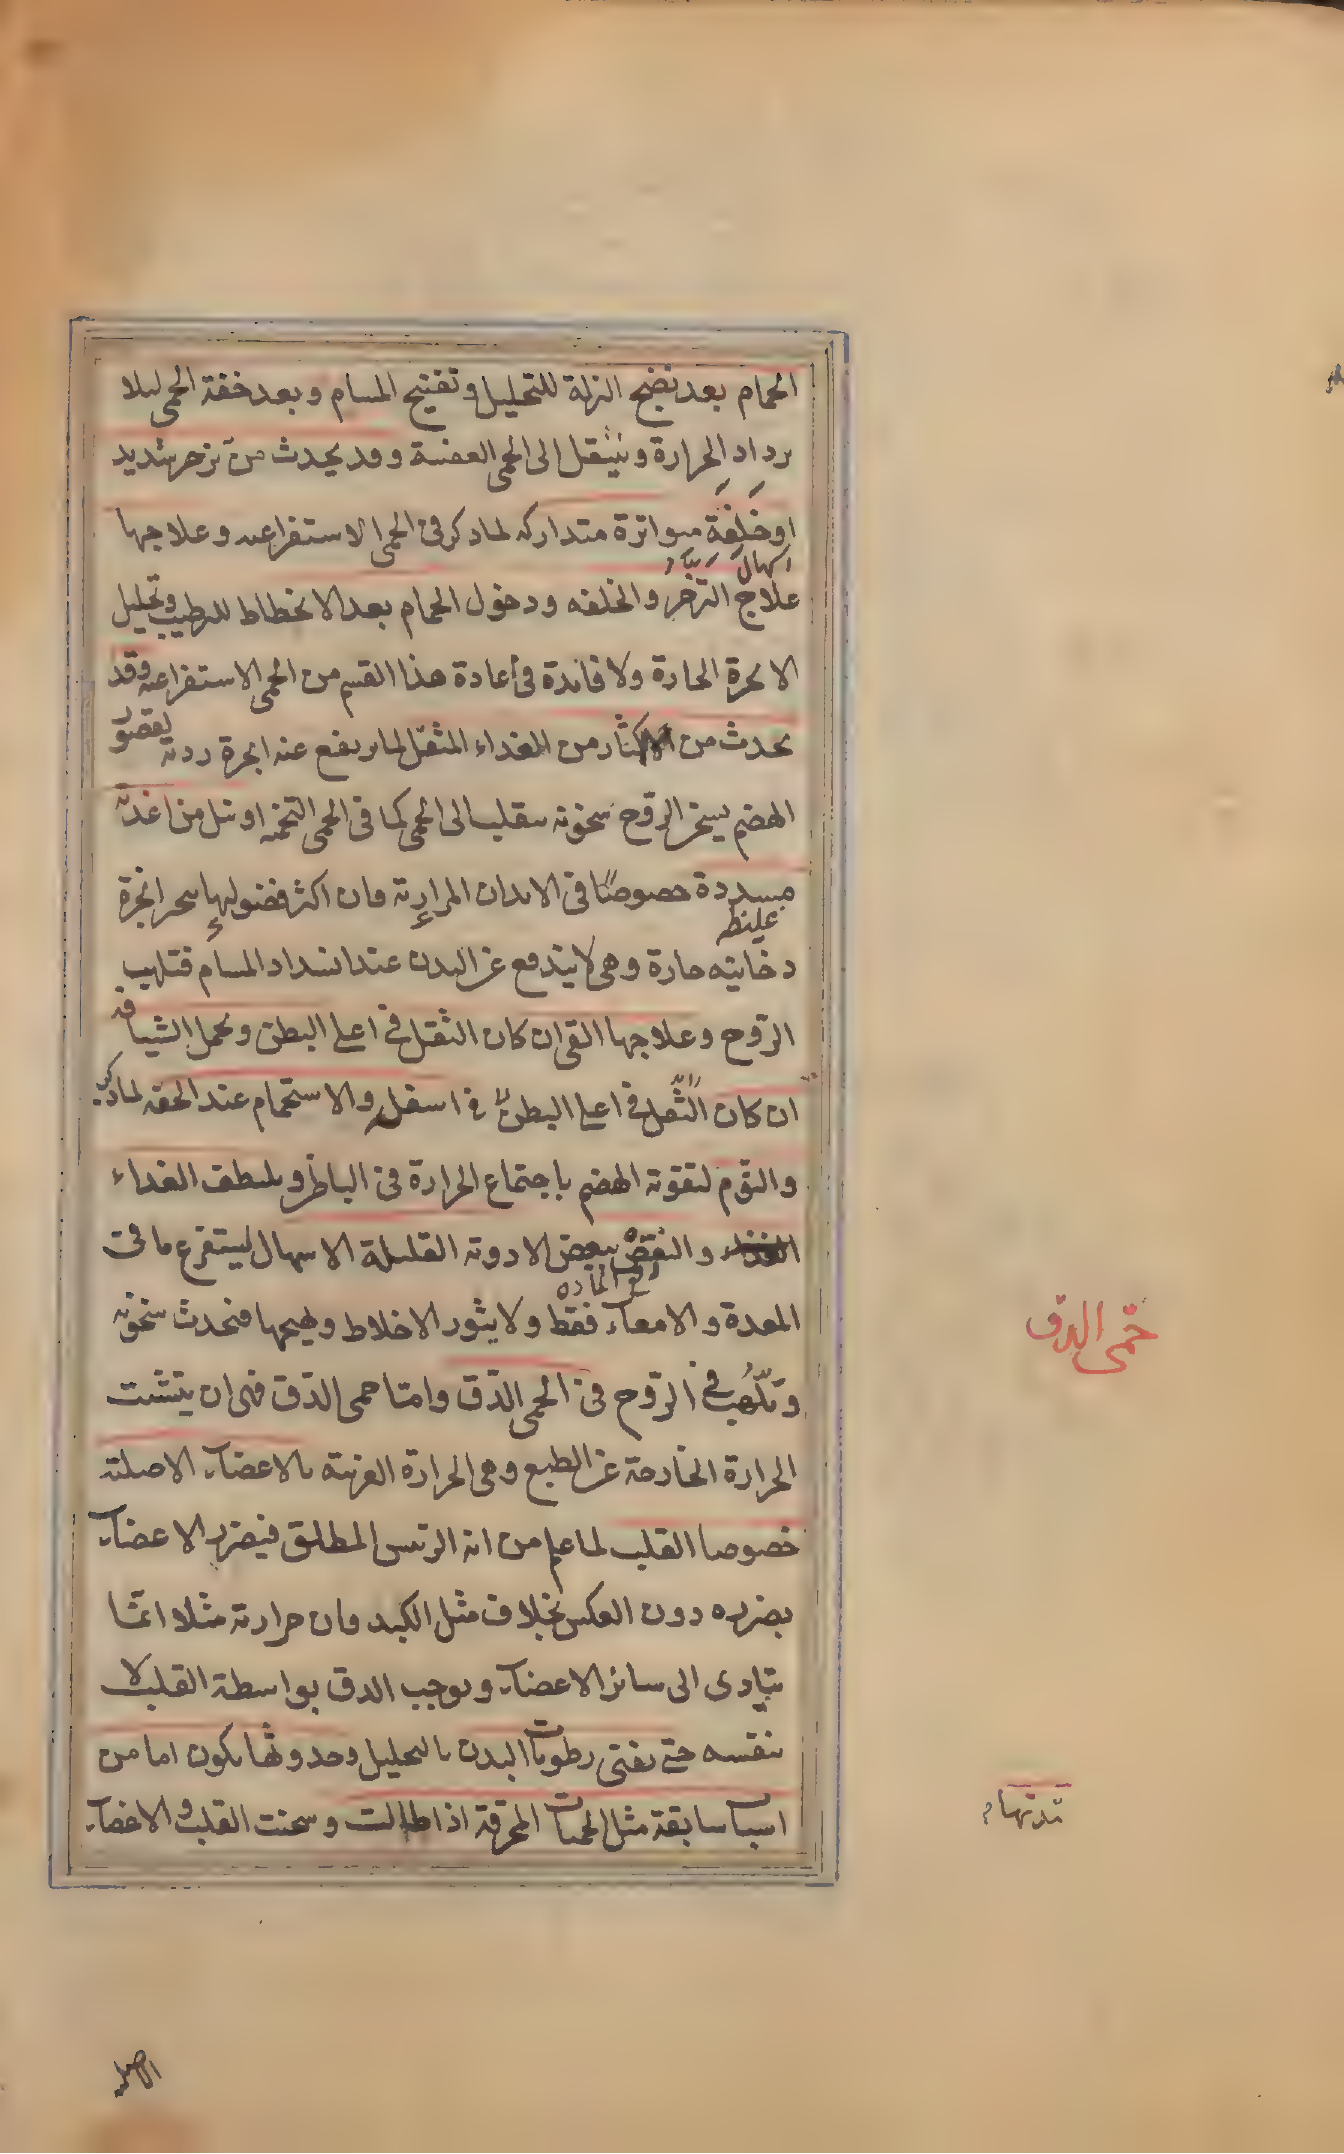 الحمام بعد نضج النزلة للتحليل وتفتيح المسام وبعد خفة الحمى ليلا
يزداد الحرارة وينتقل الى الحمى العفنية وقد يحدث من تزحر شديد
او خلفة متواترة متداركه لما ذكر فى الحمى الاستفراغيه وعلاجها
اسهال
علاج التزحر والخلفه ودخول الحمام بعد الانحطاط للترطيب وتحليل
الابخرة الحادة ولا فائدة فى أعادة هذا القسم من الحمى الاستفراغيه وقد
يحدث من الاكثار من الغداء المثقل لما يرتفع عنه ابخرة رديه لقصور
الهضم يسخن الروح سخونه ينقلب الى الحمى كما فى الحمى التخميه او تناول من اغذية
مسددة خصوصًا فى الابدان المرارية فان اكثر فضولها بخر ابخرة
غليظه
دخانيته حارة وهى لا يندفع عن البدن عند انسداد المسام فتلهب
الرّوح وعلاجها القى ان كان الثقل فى اعلى البطن وتحمل الشيافة
ان كان الثّفل فى اعلى البطن فى اسفله والاستحمام عند الخفه لما ذكر
والنّوم لتقوته الهضم باجتماع الحرارة فى الباطن وتلطف الغداء
والنفض ببعض الادوته القليلة الاسهال ليستفرغ ما فى
المادة
المعدة والامعاء فقط ولا يثور الاخلاط ويهيجها فيحدث سخونه
وتلّهب فى الرّوح فى الحمى الدّق وامّا حمى الدّق فهى ان يتشبت
حمّى الدّق
الحرارة الخارجة عن الطبع وهى الحرارة الغريبة بالاعضاء الاصلية
خصوصا القلب لما علم من انه الرئيس المطلق فيضر الاعضاء
بضرره دون العكس بخلاف مثل الكبد فان حرارته مثلا انّما
يتادى الى سائر الاعضاء ويوجب الدق بواسطة القلب لا
بنفسه حتى يفنى رطوبات البدن بالتحليل وحدوثها يكون اما من
اسباب سابقة مثل الحميات المحرقة اذا طالت وسخنت القلب والاعضاء